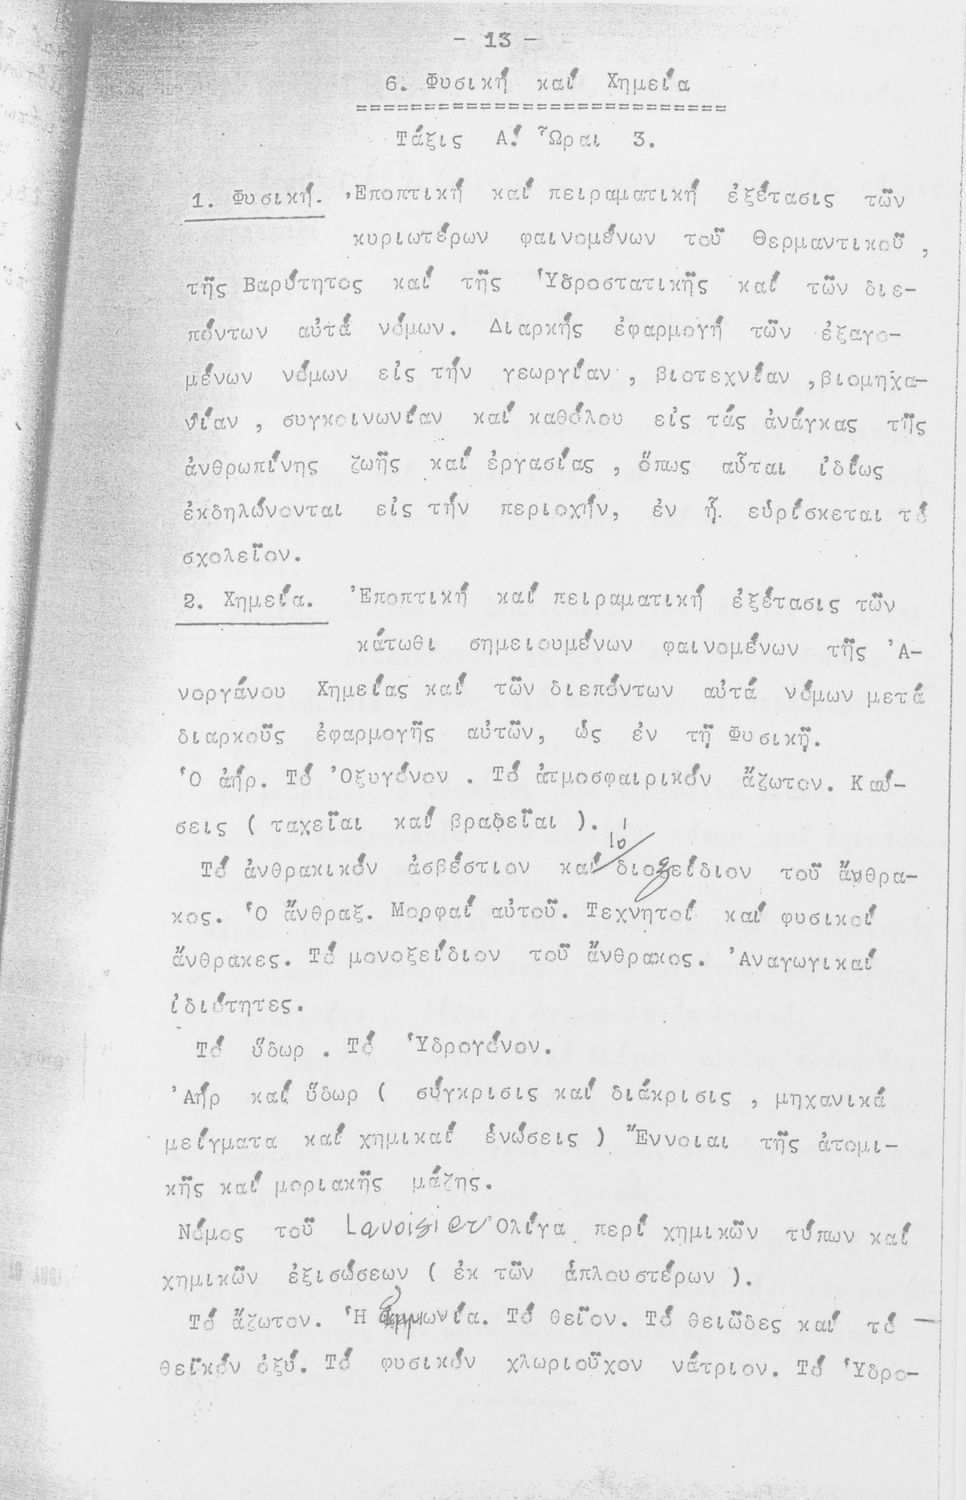 - 13 -
6. Φυσική καί Χημεία
Τάξις Α! Ὧραι 3.
1. Φυσική. Ἐποπτική καί πειραματική ἐξέτασις τῶν
κυριωτέρων φαινομένων τοῦ Θερμαντικοῦ ,
τῆς Βαρύτητος καί τῆς Ὑδροστατικῆς καί τῶν διε-
πόντων αὐτά νόμων. Διαρκής ἐφαρμογή τῶν ἐξαγο-
μένων νόμων εἰς τήν γεωργίαν , βιοτεχνίαν ,βιομηχα-
νίαν , συγκοινωνίαν καί καθόλου εἰς τάς ἀνάγκας τῆς
ἀνθρωπίνης ζωῆς καί ἐργασίας , ὅπως αὗται ἰδίως
ἐκδηλώνονται εἰς τήν περιοχήν, ἐν ᾗ εὑρίσκεται τό
σχολεῖον.
2. Χημεία. Ἐποπτική καί πειραματική ἐξέτασις τῶν
κάτωθι σημειουμένων φαινομένων τῆς Ἀ-
νοργάνου Χημείας καί τῶν διεπόντων αὐτά νόμων μετά
διαρκοῦς ἐφαρμογῆς αὐτῶν, ὡς ἐν τῇ Φυσικῇ.
Ὁ ἀήρ. Τό Ὀξυγόνον . Τό ἀτμοσφαιρικόν ἄζωτον. Καύ-
σεις ( ταχεῖαι καί βραδεῖαι ).
Τό ἀνθρακικόν ἀσβέστιον καί τό διοξείδιον τοῦ ἄνθρα-
κος. Ὁ ἄνθραξ. Μορφαί αὐτοῦ. Τεχνητοί καί φυσικοί
ἄνθρακες. Τό μονοξείδιον τοῦ ἄνθρακος. Ἀναγωγικαί
ἰδιότητες.
Τό ὕδωρ . Τό Ὑδρογόνον.
Ἀήρ καί ὕδωρ ( σύγκρισις καί διάκρισις , μηχανικά
μείγματα καί χημικαί ἑνώσεις ) Ἔννοιαι τῆς ἀτομι-
κῆς καί μοριακῆς μάζης.
Νόμος τοῦ Lavoisier Ὀλίγα περί χημικῶν τύπων καί
χημικῶν ἐξισώσεων ( ἐκ τῶν ἁπλουστέρων ).
Τό ἄζωτον. Ἡ ἀμμωνία. Τό θεῖον. Τό θειῶδες καί τό
θεϊκόν ὀξύ. Τό φυσικόν χλωριοῦχον νάτριον. Τό Ὑδρο-